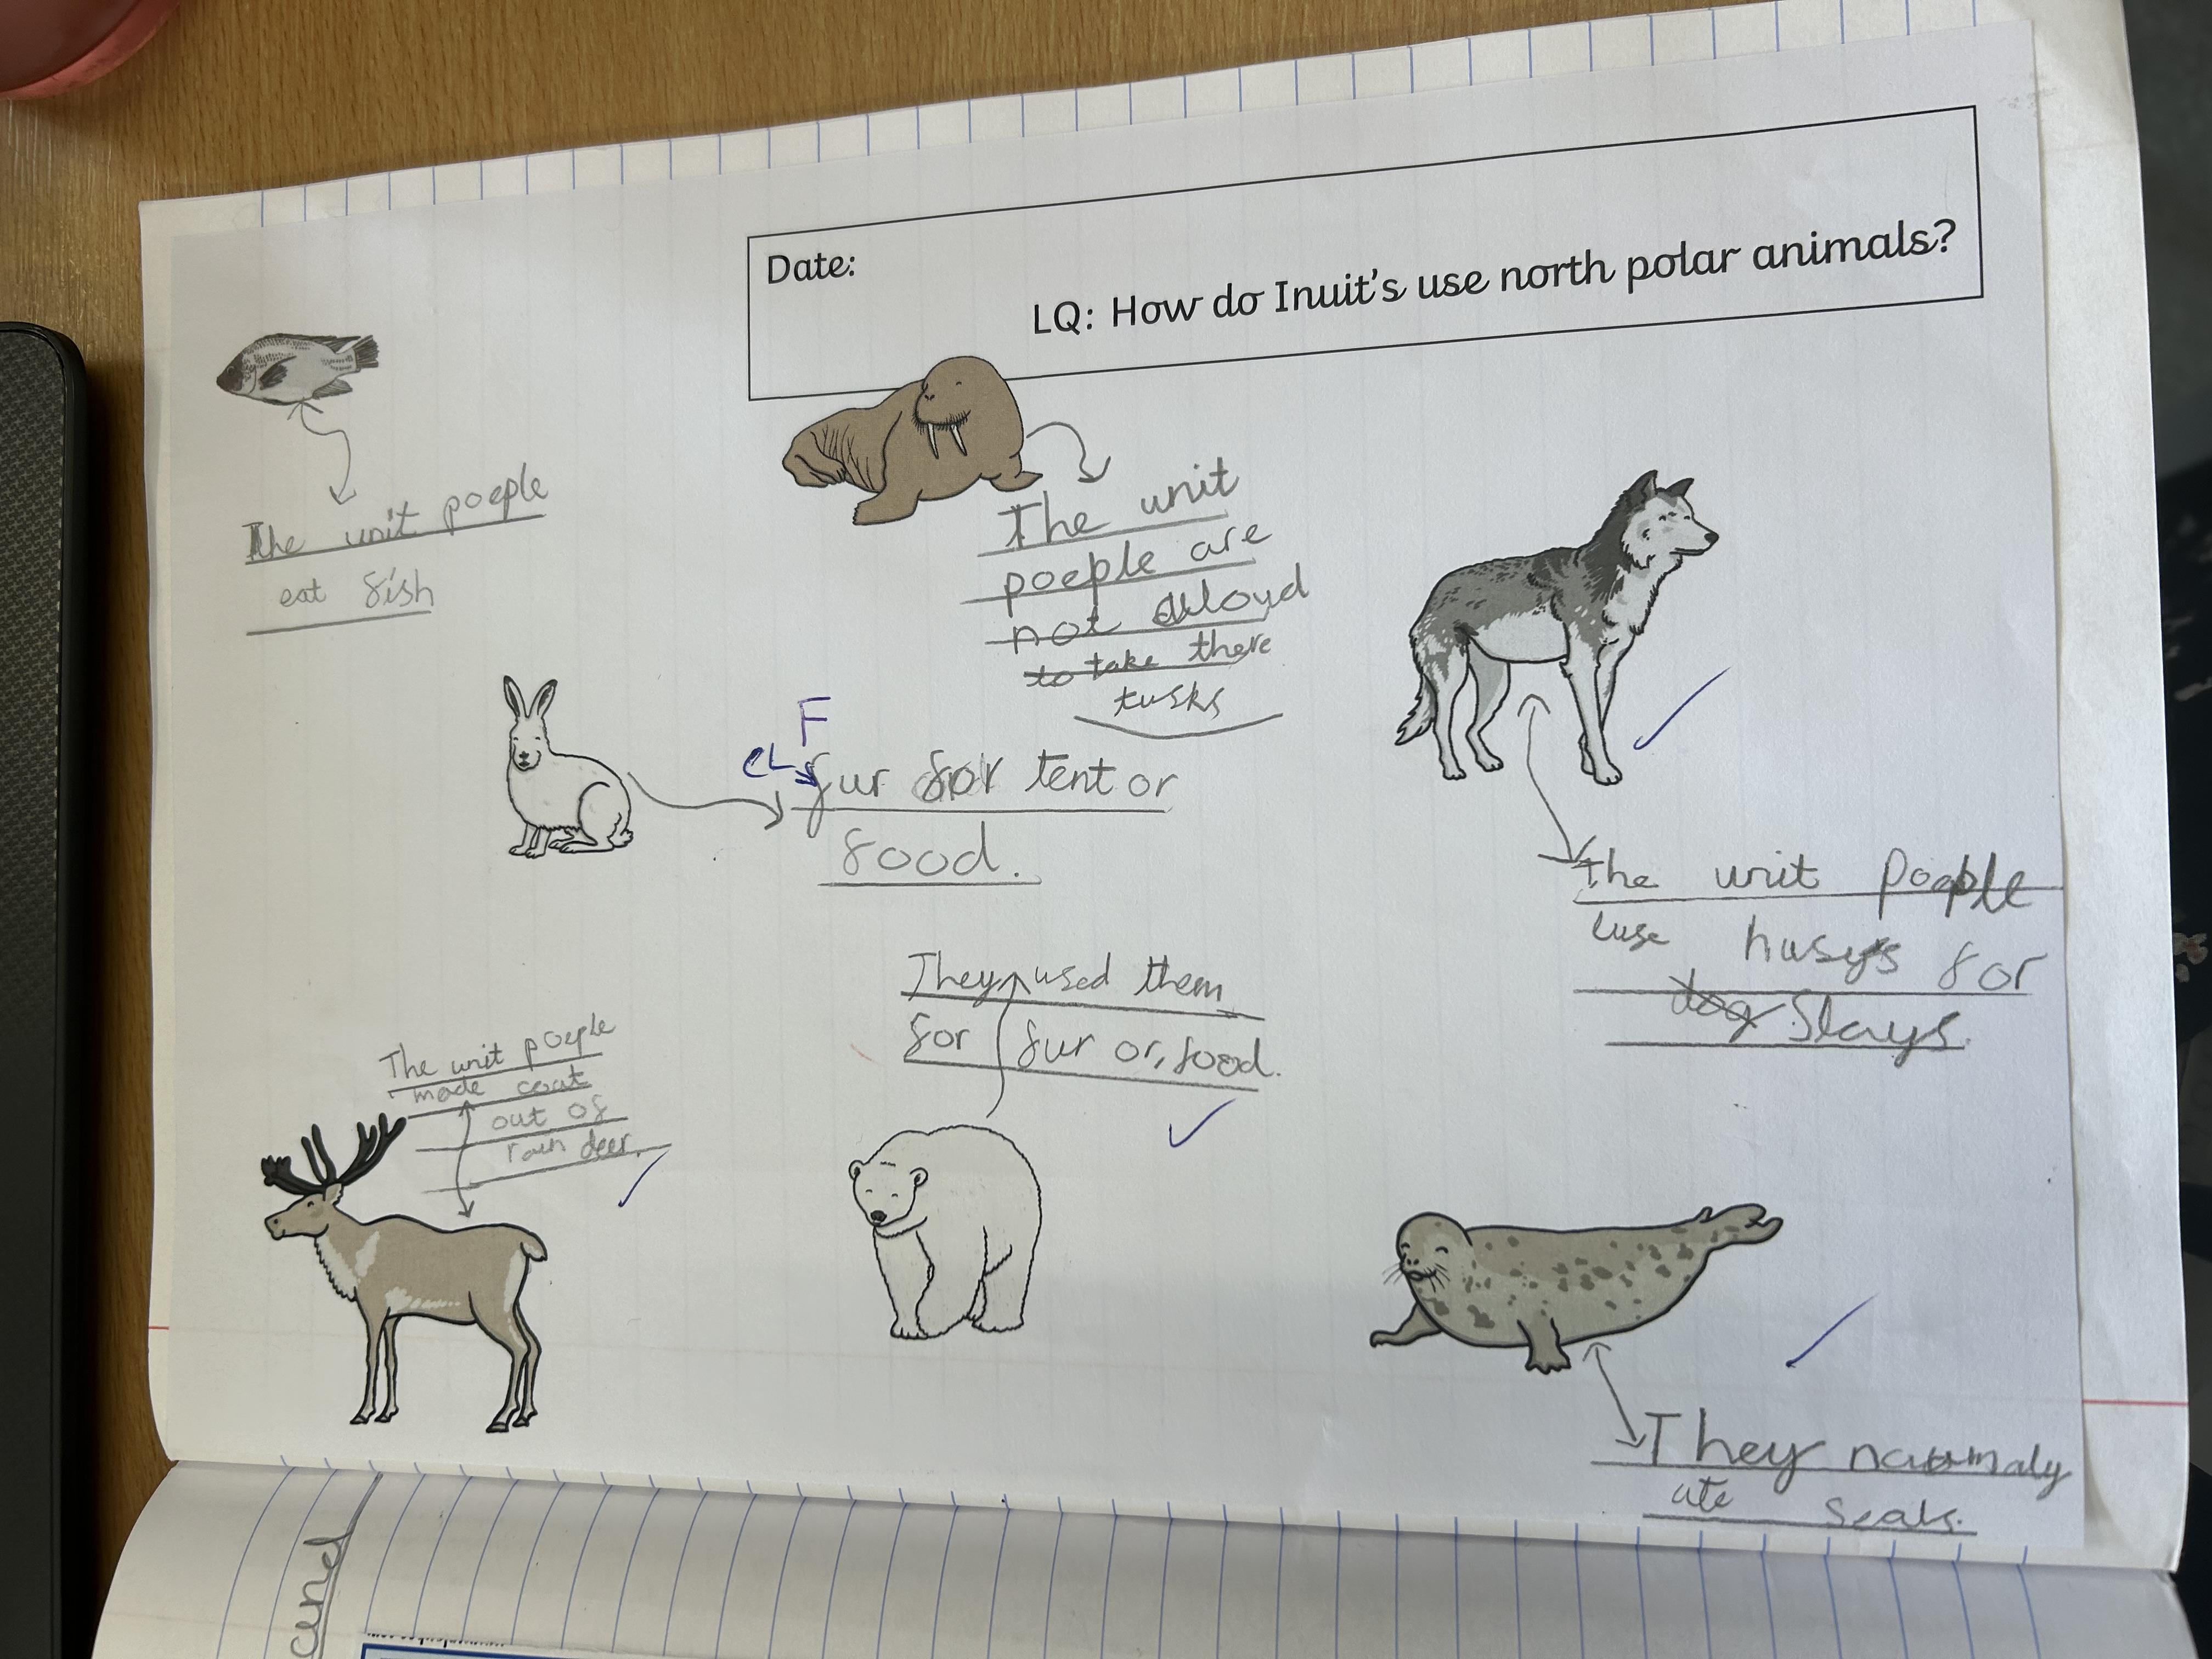 Date:
LQ: How do Inuit's use north polar animals?
The unit poeple
eat fish
The unit
poeple are
not aloud
to take there
tusks
F
CL
fur for tent or
food.
the unit poeple
use husys for
dog Slays.
They used them
for fur or, food.
The unit poeple
made coat
out of
rain deer.
They naturmaly
ate seals.
and